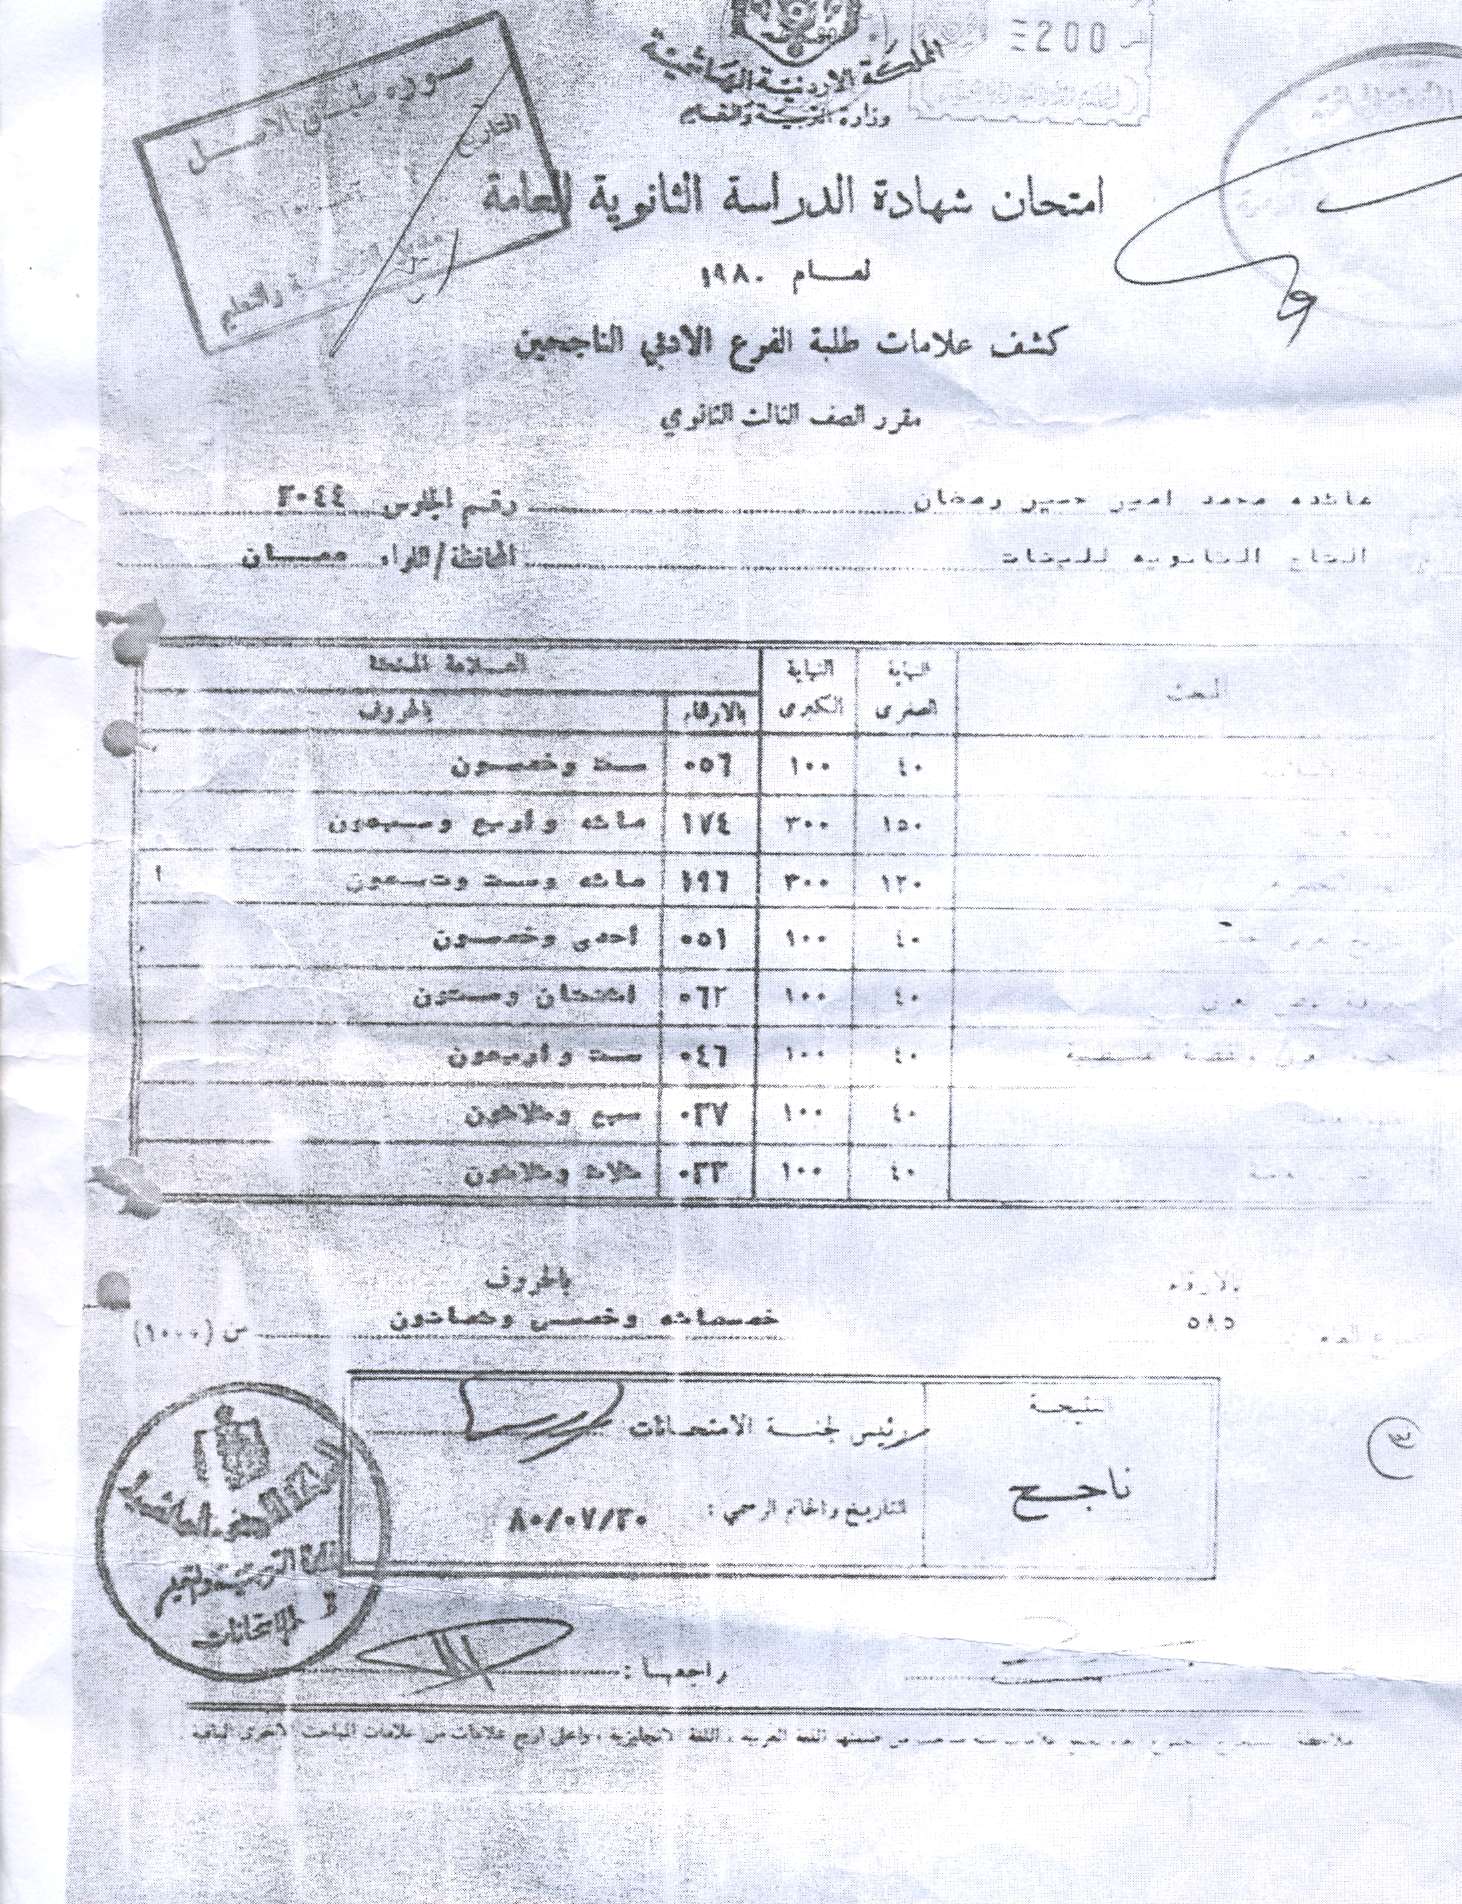 200
المملكة الاردنية الهاشمية
وزارة التربية والتعليم
صورة طبق الاصل
التاريخ
والتعليم
امتحان شهادة الدراسة الثانوية العامة
لعام ١٩٨٠
كشف علامات طلبة الفرع الادبي الناجحين
مقرر الصف الثالث الثانوي
عائده محمد امين حسين رمضان رقم الجلوس ٣٠٤٤
التاج الثانويه للبنات المحافظة/اللواء عمان
المبحث النهاية الصغرى النهاية الكبرى العلامة الممنوحة
بالارقام بالحروف
٤٠ ١٠٠ ٠٥٦ ست وخمسون
١٥٠ ٣٠٠ ١٧٤ مائه وأربع وسبعون
١٢٠ ٣٠٠ ١٩٦ مائه وست وتسعون
٤٠ ١٠٠ ٠٥١ أحدى وخمسون
٤٠ ١٠٠ ٠٦٢ اثنتان وستون
٤٠ ١٠٠ ٠٤٦ ست وأربعون
٤٠ ١٠٠ ٠٣٧ سبع وثلاثون
٤٠ ١٠٠ ٠٣٣ ثلاث وثلاثون
بالارقام بالحروف
٥٨٥ خمسمائه وخمس وثمانون من (١٠٠٠)
النتيجة
ناجح
رئيس لجنة الامتحانات
التاريخ والخاتم الرسمي : ٨٠/٠٧/٣٠
وزارة التربية والتعليم
الامتحانات
راجعها :
اللغة العربية ، اللغة الانجليزية ، واعلى اربع علامات من علامات المباحث الاخرى الباقية .